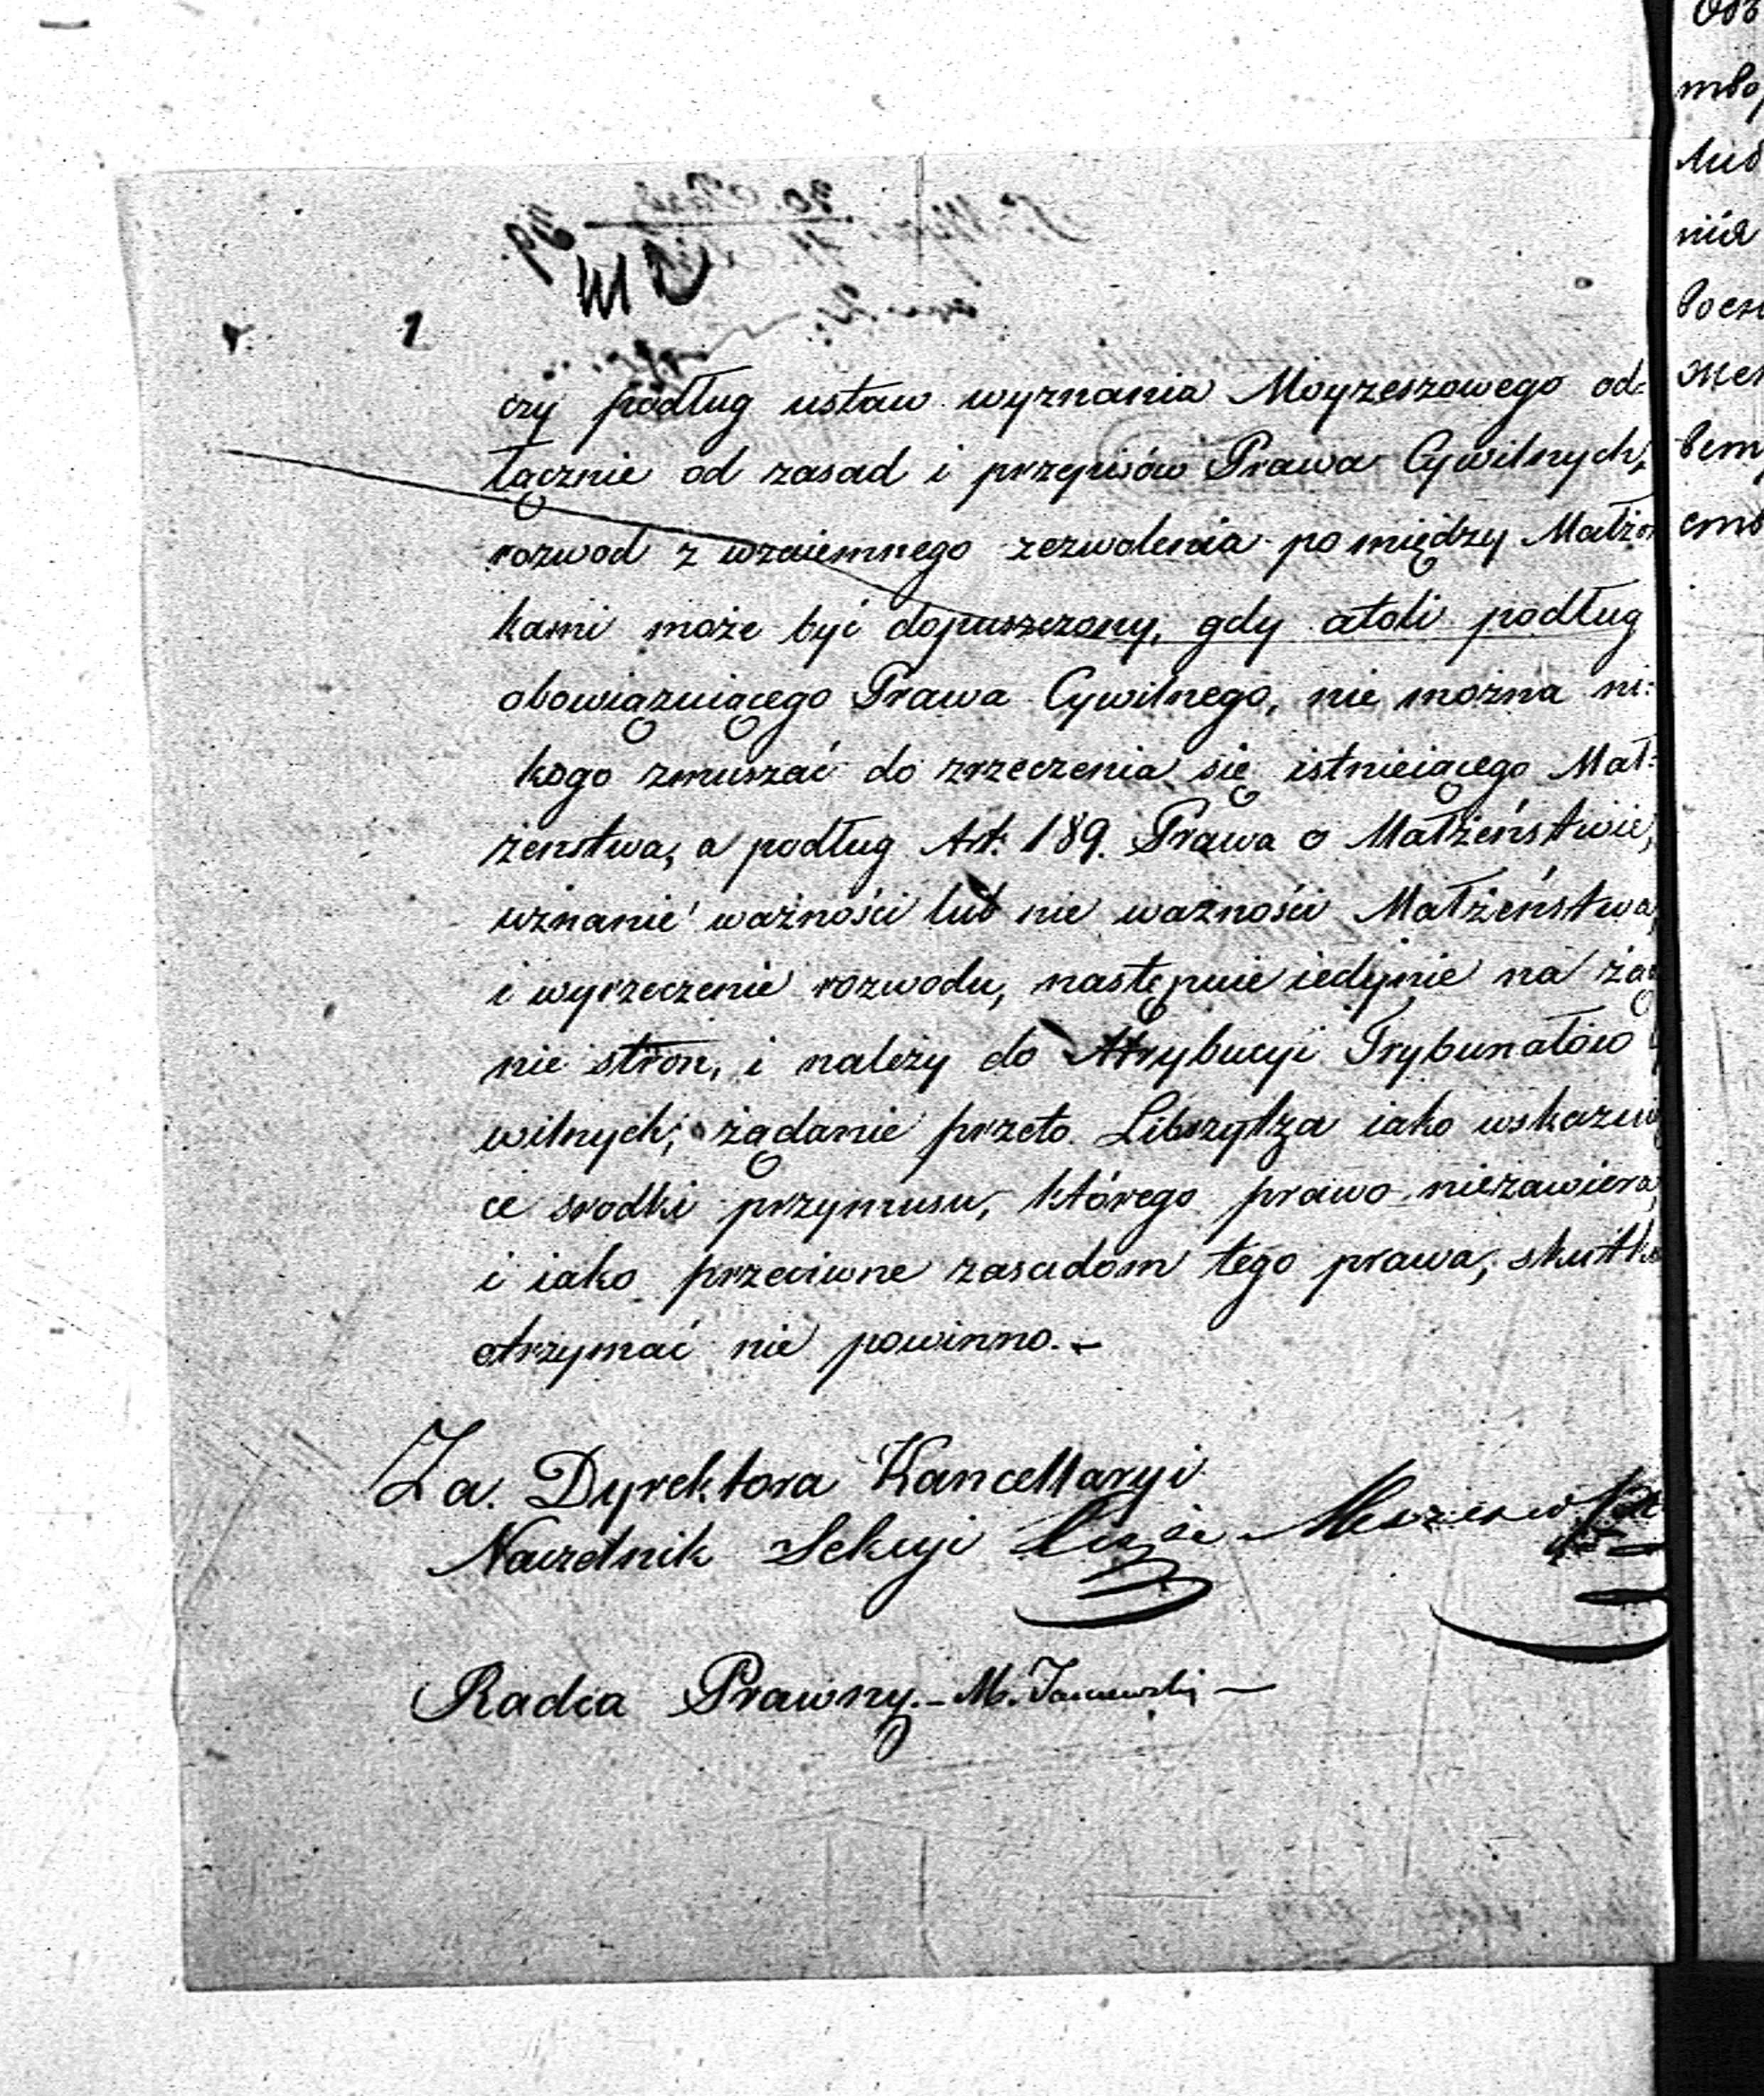 czy podług ustaw wyznania Moyżeszowego od=
łącznie od zasad i przepisów Prawa Cywilnych,
rozwod z wzaiemnego zezwolenia pomiędzy Małżon
kami może być dopuszczony, gdy atoli podług
obowiązuiącego Prawa Cywilnego, nie można ni=
kogo zmuszać do zrzeczenia się istnieiącego Mał=
żenstwa, a podług Art: 189. Prawa o Małżeństwie,
uznanie ważności lub nie ważności Małżeństwa,
i wyrzeczenie rozwodu, następuie iedynie na żą
nie stron, i należy do Atrybucyi Trybunałów
wilnych; żądanie przeto Libszytza iako wskazuią
ce srodki przymusu, którego prawo niezawiera,
i iako przeciwne zasadom tego prawa, skutku
otrzymać nie powinno.–
Za. Dyrektora Kancellaryi
Naczelnik Sekcyi
Radca Prawny.– M.